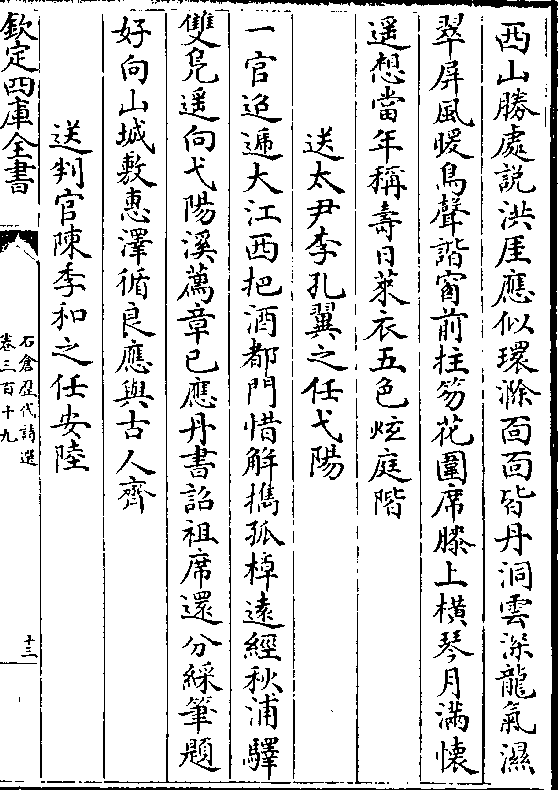 西山勝處説洪厓應似環滁面面皆丹洞雲深龍氣濕
翠屏風暖鳥聲諧窗前拄笏花圍席膝上橫琴月滿懷
遥想當年稱壽日萊衣五色炫庭階
送太尹李孔翼之任弋陽
一官迢遞大江西把酒都門惜解攜孤棹遠經秋浦驛
雙鳬遥向弋陽溪薦章已應丹書詔祖席還分綵筆題
好向山城敷惠澤循良應與古人齊
送判官陳季和之任安陸
欽定四庫全書
石倉歴代詩選
卷三百十九
十三